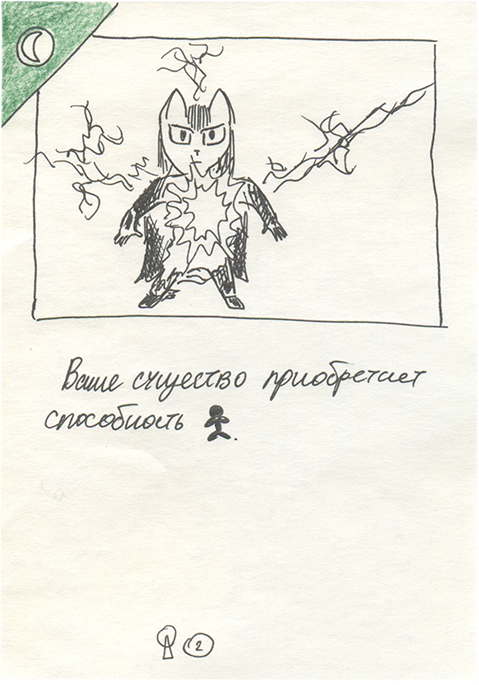 Ваше существо приобретает
способность
2